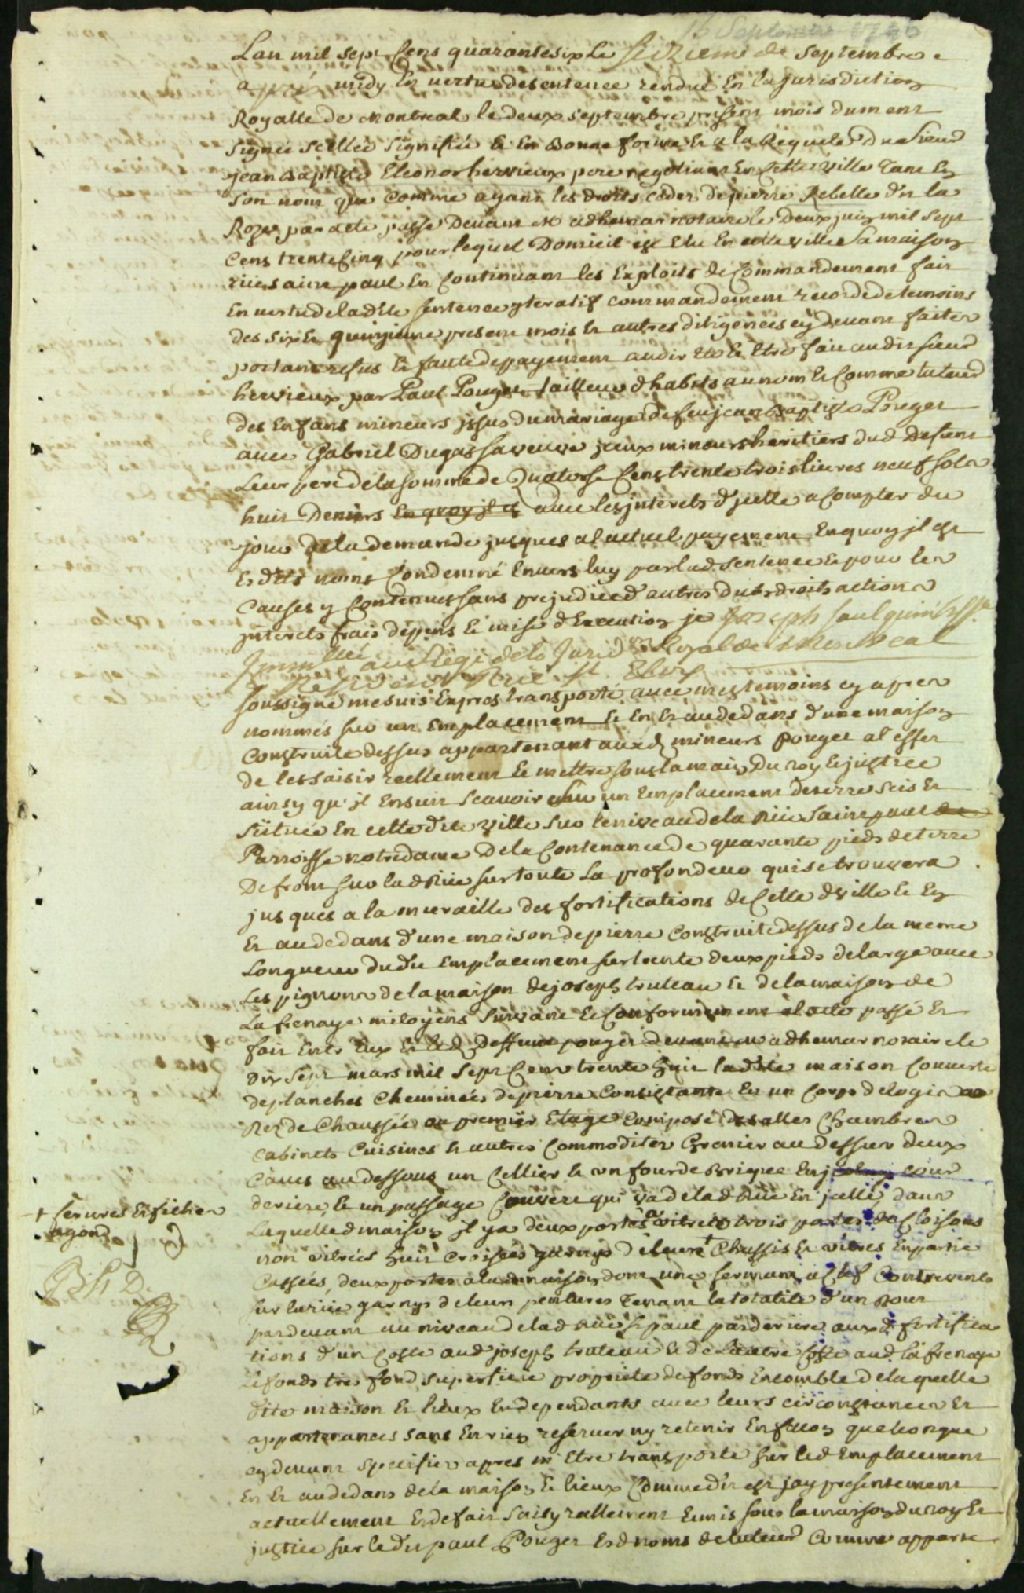 16 Septembre 1746
Lan mil sept Cens quarante six le seizieme de Septembre
apres midy En vertu de sentence rendue En la jurisdiction
Royalle de Montreal le deux septembre present mois dument
signée scellée signifiée & En Bonne forme Et a la Requete du sieur
jean Baptiste Eleonor hervieux pere negotiant En Cette ville tant En
son nom que Comme ayant les droits cedez de pierre Rebelle dit la
Roze par acte passé Devant Me adhemar notaire le Deux juin mil sept
Cens trente Cinq pour lequel Domicil est Elu En cette ville sa maison
rue saint paul En Continuant les Exploits de Commandement fait
En vertu de ladite sentence yteratif commandement recordé de temoins
des six & quinzieme present mois & autres diligences cy devant faites
portant refus & faute de payement audit Etre fait audit sieur
hervieux par Paul Pouget tailleur d'habits au nom & Comme tuteur
des Enfans mineurs jssus du mariage de feu jean Baptiste Pouget
avec Gabriel Dugas sa veuve jceux mineurs heritiers dud defunt
Leur pere de la somme de Quatorse Cens trente trois livres neuf sols
huit Deniers En quoy jl est avec les jnterets d'jcelle a Compter du
jour de la demande jusques a lactuel payement Enquoy jl est
Esdits noms Condemné Envers luy par lad sentence & pour les
Causes y Contenues sans prejudice d'autres dus droits actions
jnterets frais depens & mise d'Execution je Joseph Gaulquin
au siege de la Jurid. Royal de Montreal
soussigné me suis Expres transporté avec mes temoins cy apres
nommés sur un Emplacement & En & audedans d'une maison
Construite dessus appartenant auxd mineurs Pouget a l'effet
de les saisir reellement & mettre sous la main Du roy & justice
ainsy qu'jl Ensuit Scavoir un Emplacement de terre scis &
situé En cette dite ville sur le niveau de la Rüe saint paul
Parroisse notre dame De la Contenance de quarante pieds de terre
De front sur lad Rüe sur toute La profondeur qui se trouvera
jusques a la muraille des fortifications de Cette d ville & En
Et audedans d'une maison de pierre Construite dessus de la meme
Longueur dudit Emplacement sur trente deux pieds de large avec
Les pignons de la maison de joseph truteau & de la maison de
La frenaye mitoyens suivant & Conformement a lacte passé Et
fait Entr Eux & led Deffunt pouget devant Me adhemar notaire le
dix sept mars mil sept Cens trente huit ladite maison Couverte
de planches Cheminées de pierre Consistante En un Corps de logis au
Rez de Chaussée au premier Etage Composé de salles Chambres
Cabinets Cuisines & autres Commoditez Grenier au dessus deux
Caves au dessous un Cellier & un four de Brique En cour
deriere & un passage Couvert qui va de lad Rüe En jcelle dans
Laquelle d maison jl y a deux portes vitrées trois portes de Cloisons
non vitrées huit Croisées garnys de leurs Chassis & vitres En partie
Cassées deux portes a lad maison dont une fermant a Clef Contrevents
+ serures & fichier
sur la rüe garnys de leurs pentures Tenant la totalité d'un Bout
par devant au niveau de lad Rüe St paul par deriere auxd fortifica
tions d'un Costé aud joseph truteau & de lautre Costé aud la frenaye
le fonds tres fond superficie proprieté de fonds Ensemble de laquelle
dite maison & lieux En dependants avec leurs circonstances Et
appartenances sans En rien reserver ny retenir En façon quelconque
cy devant specifier apres m'Etre transporté sur led Emplacement
En & audedans de la maison & lieux Comme dit est jay presentement
actuellement & de fait saisy reellement & mis sous la main du roy &
justice sur ledit paul Pouget Esd noms de tuteur Comme apparte